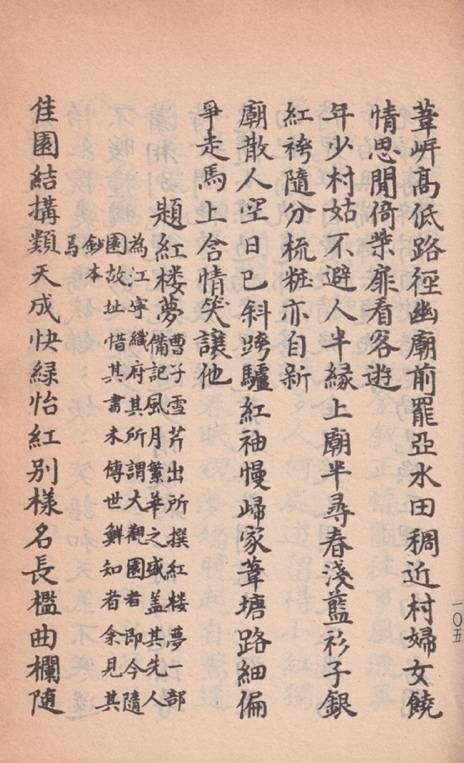 葦岍高低路徑幽廟前罷亞水田稠近村婦女饒
情思閒倚柴扉看客遊
年少村姑不避人半緣上廟半尋春淺藍衫子銀
紅袴隨分梳粧亦自新
廟散人空日已斜跨驢紅袖慢歸家葦塘路細偏
爭走馬上含情笑讓他
題紅楼夢
曹子雪芹出所撰紅楼夢一部
備記風月繁華之盛盖其先人
為江寧織府其所謂大觀園者即今隨
園故址惜其書未傳世鮮知者余見其
鈔本
焉
佳園結搆類天成快綠怡紅別様名長檻曲欄隨
一〇五